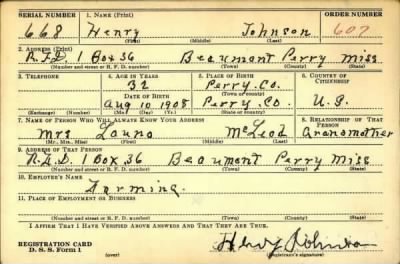 SERIAL NUMBER 1. NAME (Print) ORDER NUMBER
668 Henry Johnson 607
(First) (Middle) (Last)
2. ADDRESS (Print)
R.F.D. 1 Box 36 Beaumont Perry Miss
(Number and street or R. F. D. number) (Town) (County) (State)
3. TELEPHONE 4. AGE IN YEARS 5. PLACE OF BIRTH 6. COUNTRY OF CITIZENSHIP
32 Perry. Co.
DATE OF BIRTH (Town or county)
Aug 10 1908 Perry. Co. U.S.
(Exchange) (Number) (Mo.) (Day) (Yr.) (State or country)
7. NAME OF PERSON WHO WILL ALWAYS KNOW YOUR ADDRESS 8. RELATIONSHIP OF THAT PERSON
Mrs McLeod Grandmother
(Mr., Mrs., Miss) (First) (Middle) (Last)
9. ADDRESS OF THAT PERSON
R.F.D. 1 Box 36 Beaumont Perry Miss
(Number and street or R. F. D. number) (Town) (County) (State)
10. EMPLOYER'S NAME
Farming.
11. PLACE OF EMPLOYMENT OR BUSINESS
(Number and street or R. F. D. number) (Town) (County) (State)
I AFFIRM THAT I HAVE VERIFIED ABOVE ANSWERS AND THAT THEY ARE TRUE.
REGISTRATION CARD Henry Johnson
D. S. S. Form 1 (over) (Registrant's signature)